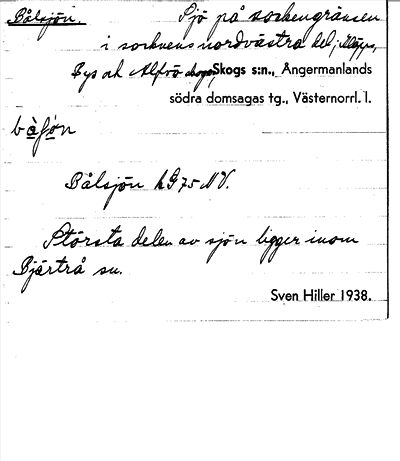 Bålsjön. Sjö på sockengränsen
i socknens nordvästra del;
Bys och Alfrö Skogs s:n., Ångermanlands
södra domsagas tg., Västernorrl. l.
Bålsjön hG 75 NV.
Största delen av sjön ligger inom
Bjärtrå sn.
Sven Hiller 1938.